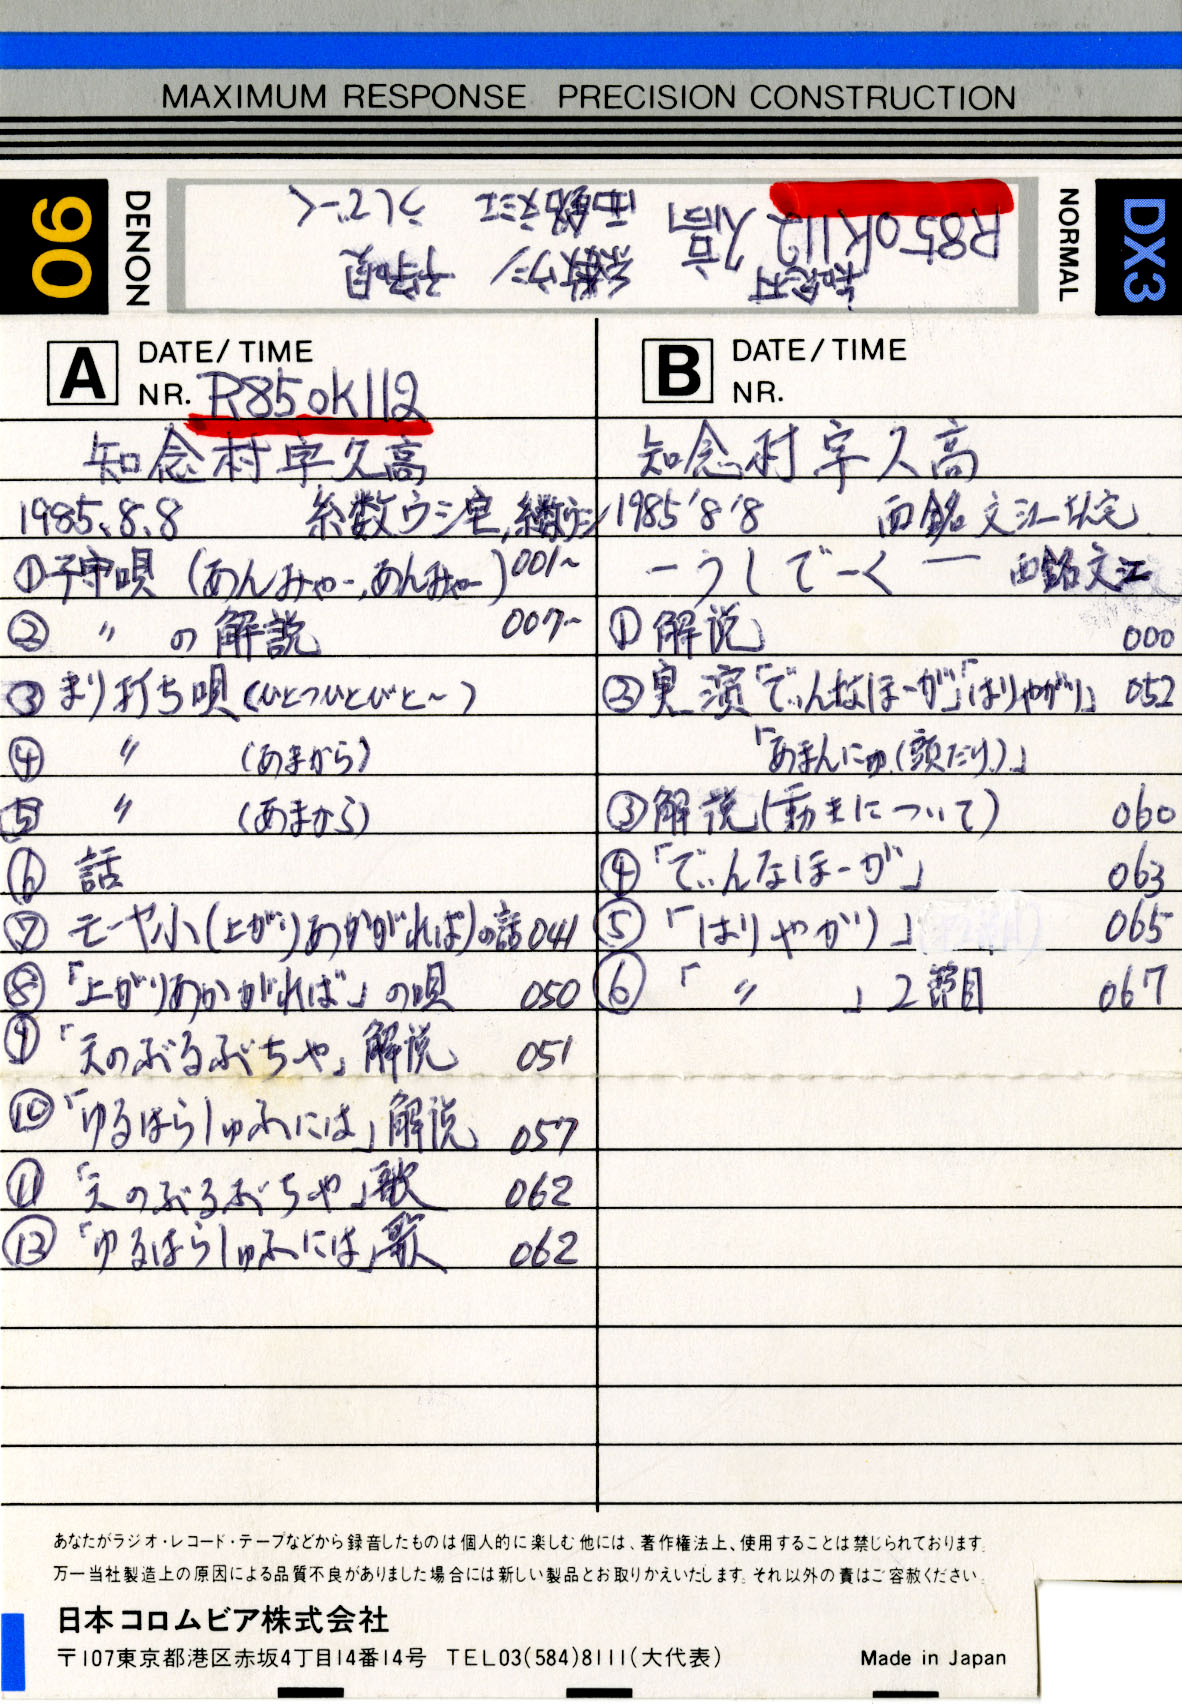 MAXIMUM RESPONSE PRECISION CONSTRUCTION
90
DENON
R850K112
知念村 久高
糸数ウシ / 子守唄
西銘文江 うしでーく
NORMAL
DX3
A DATE/TIME
NR. R850K112
知念村字久高
1985.8.8 糸数ウシ宅,糸数ウシ
①子守唄 (あんみゃー,あんみゃー) 001~
② 〃 の解説 007~
③まり打ち唄(ひとつひとびと~)
④ 〃 (あまから)
⑤ 〃 (あまから)
⑥ 話
⑦ モーヤ小(上がりあかがれば)の話 041
⑧「上がりあかがれば」の唄 050
⑨「天のぶるぶちゃ」解説 051
⑩「ゆるはらしゅふには」解説 057
⑪「天のぶるぶちゃ」歌 062
⑬「ゆるはらしゅふには」歌 062
B DATE/TIME
NR.
知念村字久高
1985'8'8 西銘文江さん宅
ーうしでーくー 西銘文江
①解説 000
②実演「でぃんなほーが」「はりやがり」 052
「あまんにゅ(頭だけ)」
③解説(動きについて) 060
④「でぃんなほーが」 063
⑤「はりやがり」 065
⑥「 〃 」2節目 067
あなたがラジオ・レコード・テープなどから録音したものは個人的に楽しむ他には、著作権法上、使用することは禁じられております。
万一当社製造上の原因による品質不良がありました場合には新しい製品とお取りかえいたします。それ以外の責はご容赦ください。
日本コロムビア株式会社
〒107東京都港区赤坂4丁目14番14号 TEL03(584)8111(大代表)
Made in Japan